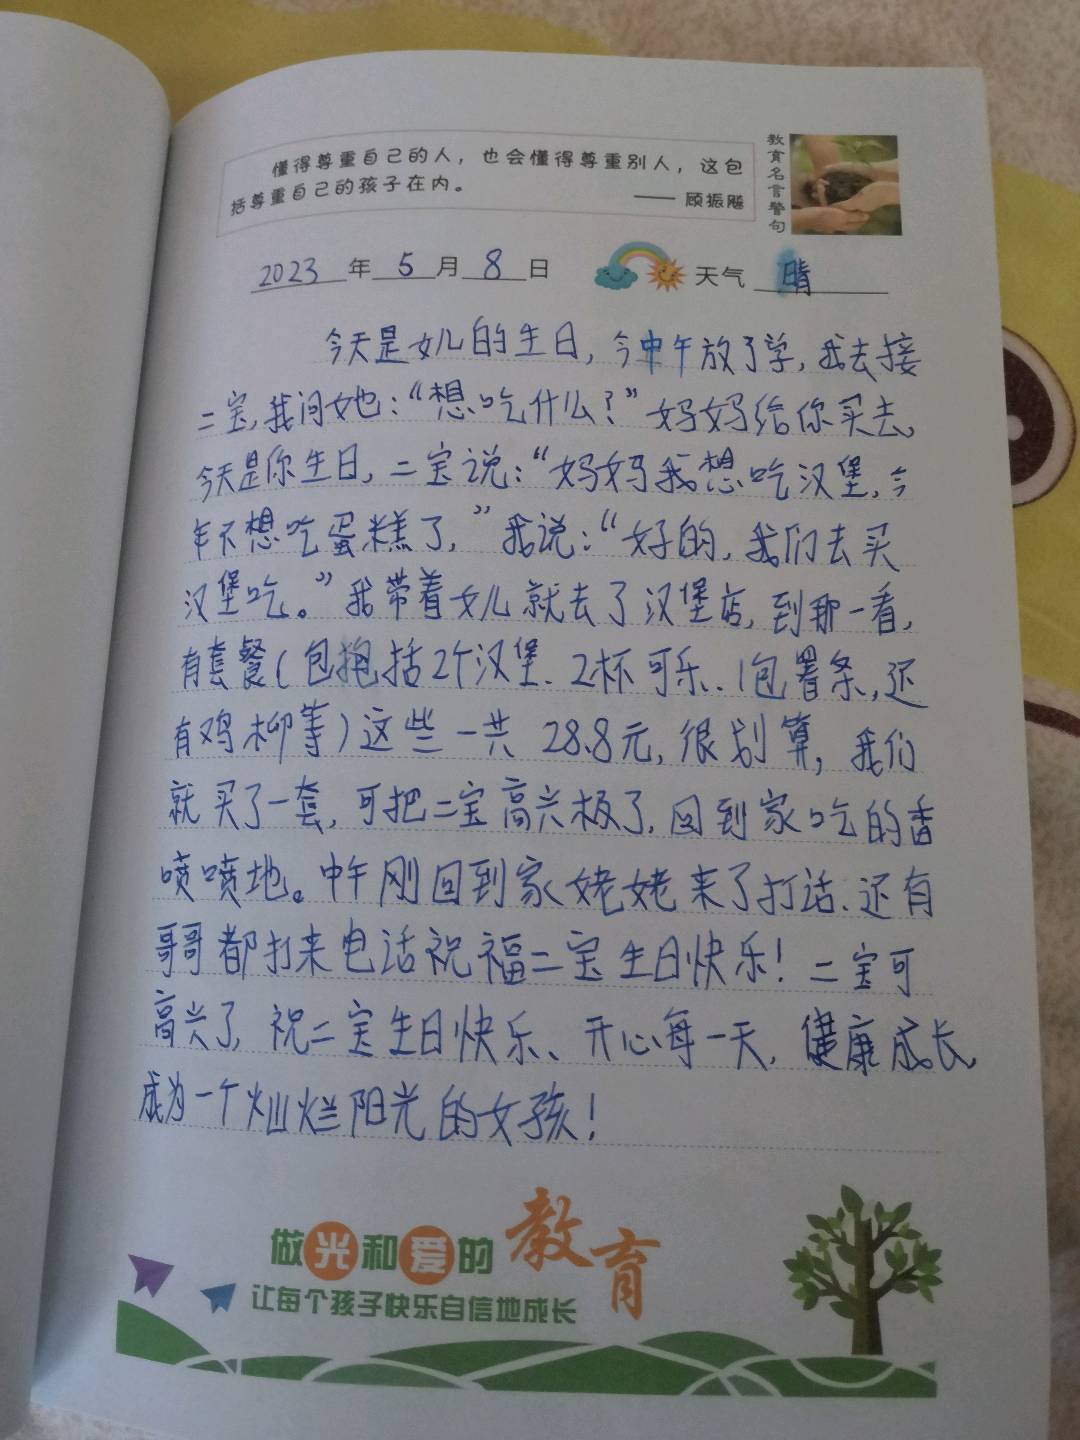 懂得尊重自己的人，也会懂得尊重别人，这包
括尊重自己的孩子在内。
—— 顾振飚
教育名言警句
2023 年 5 月 8 日 天气 晴
今天是女儿的生日，今中午放了学，我去接
二宝，我问她：“想吃什么？”妈妈给你买去，
今天是你生日，二宝说：“妈妈我想吃汉堡，今
年不想吃蛋糕了，”我说：“好的，我们去买
汉堡吃。”我带着女儿就去了汉堡店，到那一看，
有套餐（包抱括2个汉堡、2杯可乐、1包署条，还
有鸡柳等）这些一共 28.8元，很划算，我们
就买了一套，可把二宝高兴极了，回到家吃的香
喷喷地。中午刚回到家姥姥来了打话、还有
哥哥都打来电话祝福二宝生日快乐！二宝可
高兴了，祝二宝生日快乐、开心每一天，健康成长，
成为一个灿烂阳光的女孩！
做光和爱的教育
让每个孩子快乐自信地成长